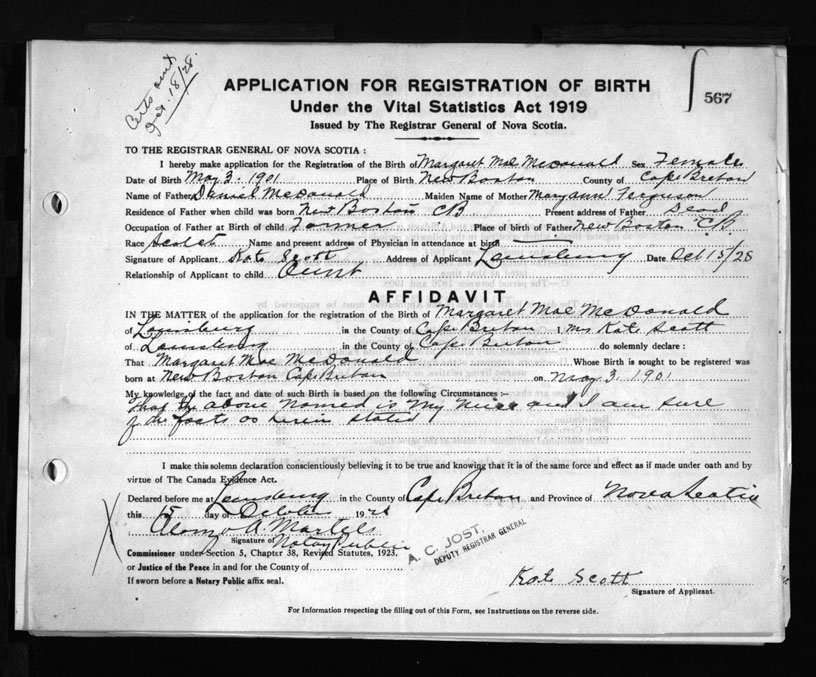 Certs sent
Oct. 18/28.
APPLICATION FOR REGISTRATION OF BIRTH
567
Under the Vital Statistics Act 1919
Issued by The Registrar General of Nova Scotia.
TO THE REGISTRAR GENERAL OF NOVA SCOTIA :
I hereby make application for the Registration of the Birth of Margaret Mae McDonald Sex Female
Date of Birth May 3. 1901 Place of Birth New Boston County of Cape Breton
Name of Father Daniel McDonald Maiden Name of Mother Mary Ann Ferguson
Residence of Father when child was born New Boston CB Present address of Father Dead
Occupation of Father at Birth of child Farmer Place of birth of Father New Boston CB
Race Scotch Name and present address of Physician in attendance at birth
Signature of Applicant Kate Scott Address of Applicant Louisburg Date Oct 15/28
Relationship of Applicant to child Aunt
AFFIDAVIT
IN THE MATTER of the application for the registration of the Birth of Margaret Mae McDonald
of Louisburg in the County of Cape Breton I, Mrs Kate Scott
of Louisburg in the County of Cape Breton do solemnly declare :
That Margaret Mae McDonald Whose Birth is sought to be registered was
born at New Boston Cape Breton on May 3. 1901
My knowledge of the fact and date of such Birth is based on the following Circumstances :-
That the above named is my niece and I am sure
of the facts as herein stated
I make this solemn declaration conscientiously believing it to be true and knowing that it is of the same force and effect as if made under oath and by
virtue of The Canada Evidence Act.
Declared before me at Louisburg in the County of Cape Breton and Province of Nova Scotia
this 15 day of October 1928
Alonzo A. Martell
Signature of Notary Public
Commissioner under Section 5, Chapter 38, Revised Statutes, 1923.
A. C. JOST,
DEPUTY REGISTRAR GENERAL
or Justice of the Peace in and for the County of
If sworn before a Notary Public affix seal.
Kate Scott
Signature of Applicant.
For Information respecting the filling out of this Form, see Instructions on the reverse side.